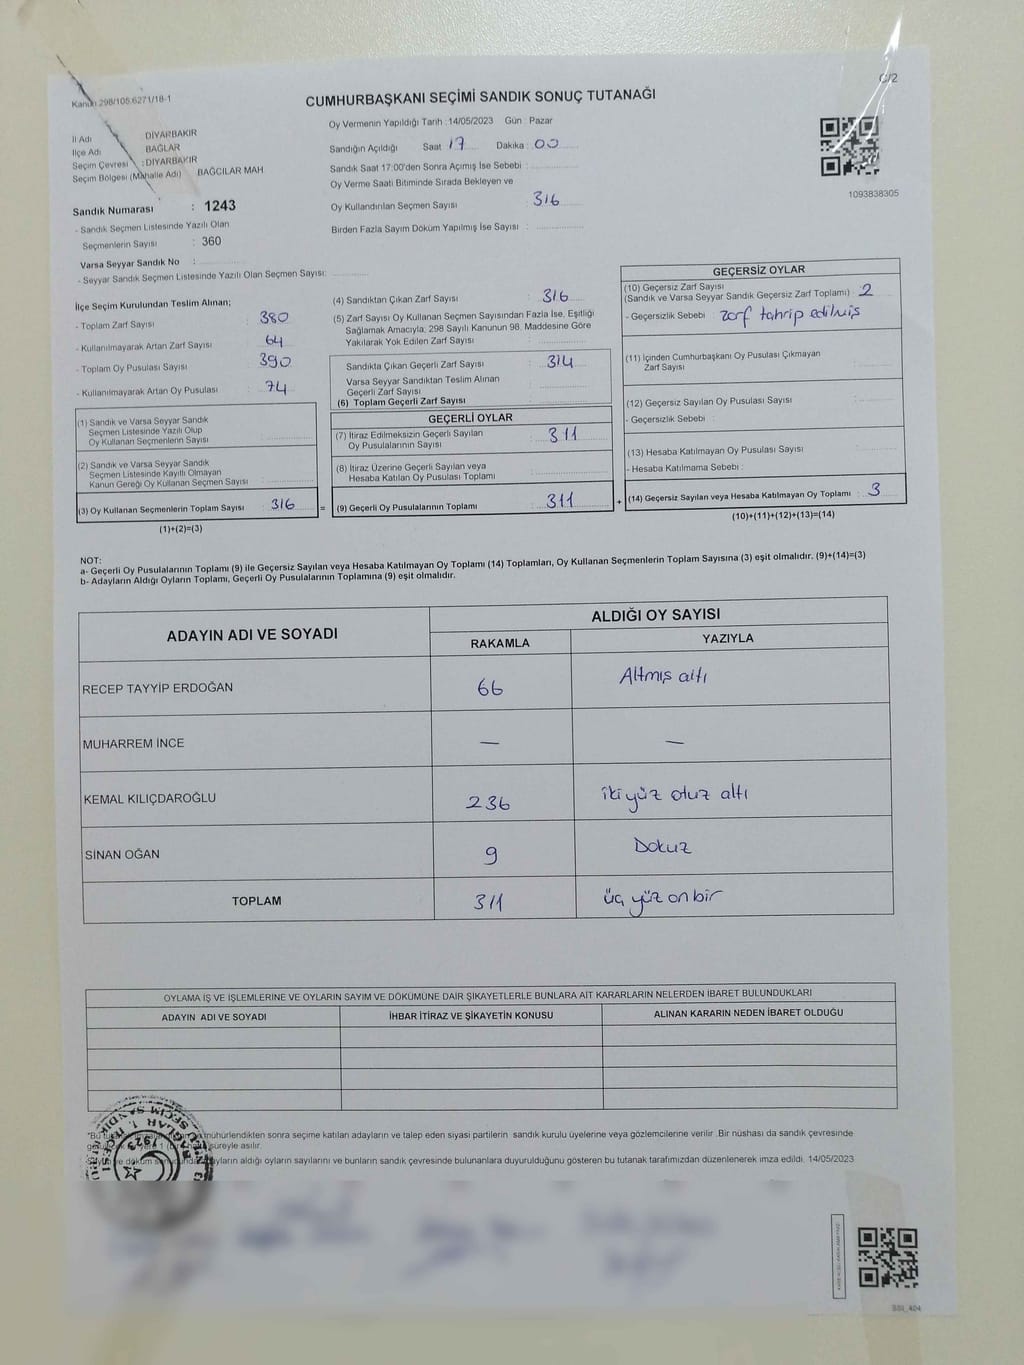 Kanun 298/105.6271/18-1
C/2
CUMHURBAŞKANI SEÇİMİ SANDIK SONUÇ TUTANAĞI
İl Adı DİYARBAKIR
İlçe Adı BAĞLAR
Seçim Çevresi : DİYARBAKIR
Seçim Bölgesi (Mahalle Adı) BAĞCILAR MAH
Oy Vermenin Yapıldığı Tarih : 14/05/2023 Gün : Pazar
Sandığın Açıldığı Saat 17 Dakika : 00
Sandık Saat 17:00'den Sonra Açımış İse Sebebi :
Oy Verme Saati Bitiminde Sırada Bekleyen ve
Oy Kullandırılan Seçmen Sayısı : 316
Birden Fazla Sayım Döküm Yapılmış İse Sayısı :
1093838305
Sandık Numarası : 1243
- Sandık Seçmen Listesinde Yazılı Olan
Seçmenlerin Sayısı : 360
Varsa Seyyar Sandık No :
- Seyyar Sandık Seçmen Listesinde Yazılı Olan Seçmen Sayısı:
İlçe Seçim Kurulundan Teslim Alınan;
- Toplam Zarf Sayısı : 380
- Kullanılmayarak Artan Zarf Sayısı : 64
- Toplam Oy Pusulası Sayısı : 390
- Kullanılmayarak Artan Oy Pusulası : 74
(1) Sandık ve Varsa Seyyar Sandık
Seçmen Listesinde Yazılı Olup
Oy Kullanan Seçmenlerin Sayısı :
(2) Sandık ve Varsa Seyyar Sandık
Seçmen Listesinde Kayıtlı Olmayan
Kanun Gereği Oy Kullanan Seçmen Sayısı :
(3) Oy Kullanan Seçmenlerin Toplam Sayısı : 316 =
(1)+(2)=(3)
(4) Sandıktan Çıkan Zarf Sayısı : 316
(5) Zarf Sayısı Oy Kullanan Seçmen Sayısından Fazla İse, Eşitliği
Sağlamak Amacıyla, 298 Sayılı Kanunun 98. Maddesine Göre
Yakılarak Yok Edilen Zarf Sayısı :
Sandıkta Çıkan Geçerli Zarf Sayısı : 314
Varsa Seyyar Sandıktan Teslim Alınan
Geçerli Zarf Sayısı :
(6) Toplam Geçerli Zarf Sayısı :
GEÇERLİ OYLAR
(7) İtiraz Edilmeksizin Geçerli Sayılan
Oy Pusulalarının Sayısı : 311
(8) İtiraz Üzerine Geçerli Sayılan veya
Hesaba Katılan Oy Pusulası Toplamı :
(9) Geçerli Oy Pusulalarının Toplamı : 311 +
GEÇERSİZ OYLAR
(10) Geçersiz Zarf Sayısı
(Sandık ve Varsa Seyyar Sandık Geçersiz Zarf Toplamı) : 2
- Geçersizlik Sebebi : zarf tahrip edilmiş
(11) İçinden Cumhurbaşkanı Oy Pusulası Çıkmayan
Zarf Sayısı :
(12) Geçersiz Sayılan Oy Pusulası Sayısı :
- Geçersizlik Sebebi :
(13) Hesaba Katılmayan Oy Pusulası Sayısı :
- Hesaba Katılmama Sebebi :
(14) Geçersiz Sayılan veya Hesaba Katılmayan Oy Toplamı : 3
(10)+(11)+(12)+(13)=(14)
NOT:
a- Geçerli Oy Pusulalarının Toplamı (9) ile Geçersiz Sayılan veya Hesaba Katılmayan Oy Toplamı (14) Toplamları, Oy Kullanan Seçmenlerin Toplam Sayısına (3) eşit olmalıdır. (9)+(14)=(3)
b- Adayların Aldığı Oyların Toplamı, Geçerli Oy Pusulalarının Toplamına (9) eşit olmalıdır.
ADAYIN ADI VE SOYADI ALDIĞI OY SAYISI
RAKAMLA YAZIYLA
RECEP TAYYİP ERDOĞAN 66 Altmış altı
MUHARREM İNCE — —
KEMAL KILIÇDAROĞLU 236 iki yüz otuz altı
SİNAN OĞAN 9 Dokuz
TOPLAM 311 üç yüz on bir
OYLAMA İŞ VE İŞLEMLERİNE VE OYLARIN SAYIM VE DÖKÜMÜNE DAİR ŞİKAYETLERLE BUNLARA AİT KARARLARIN NELERDEN İBARET BULUNDUKLARI
ADAYIN ADI VE SOYADI İHBAR İTİRAZ VE ŞİKAYETİN KONUSU ALINAN KARARIN NEDEN İBARET OLDUĞU
mühürlendikten sonra seçime katılan adayların ve talep eden siyasi partilerin sandık kurulu üyelerine veya gözlemcilerine verilir .Bir nüshası da sandık çevresinde
süreyle asılır.
adayların aldığı oyların sayılarını ve bunların sandık çevresinde bulunanlara duyurulduğunu gösteren bu tutanak tarafımızdan düzenlenerek imza edildi. 14/05/2023